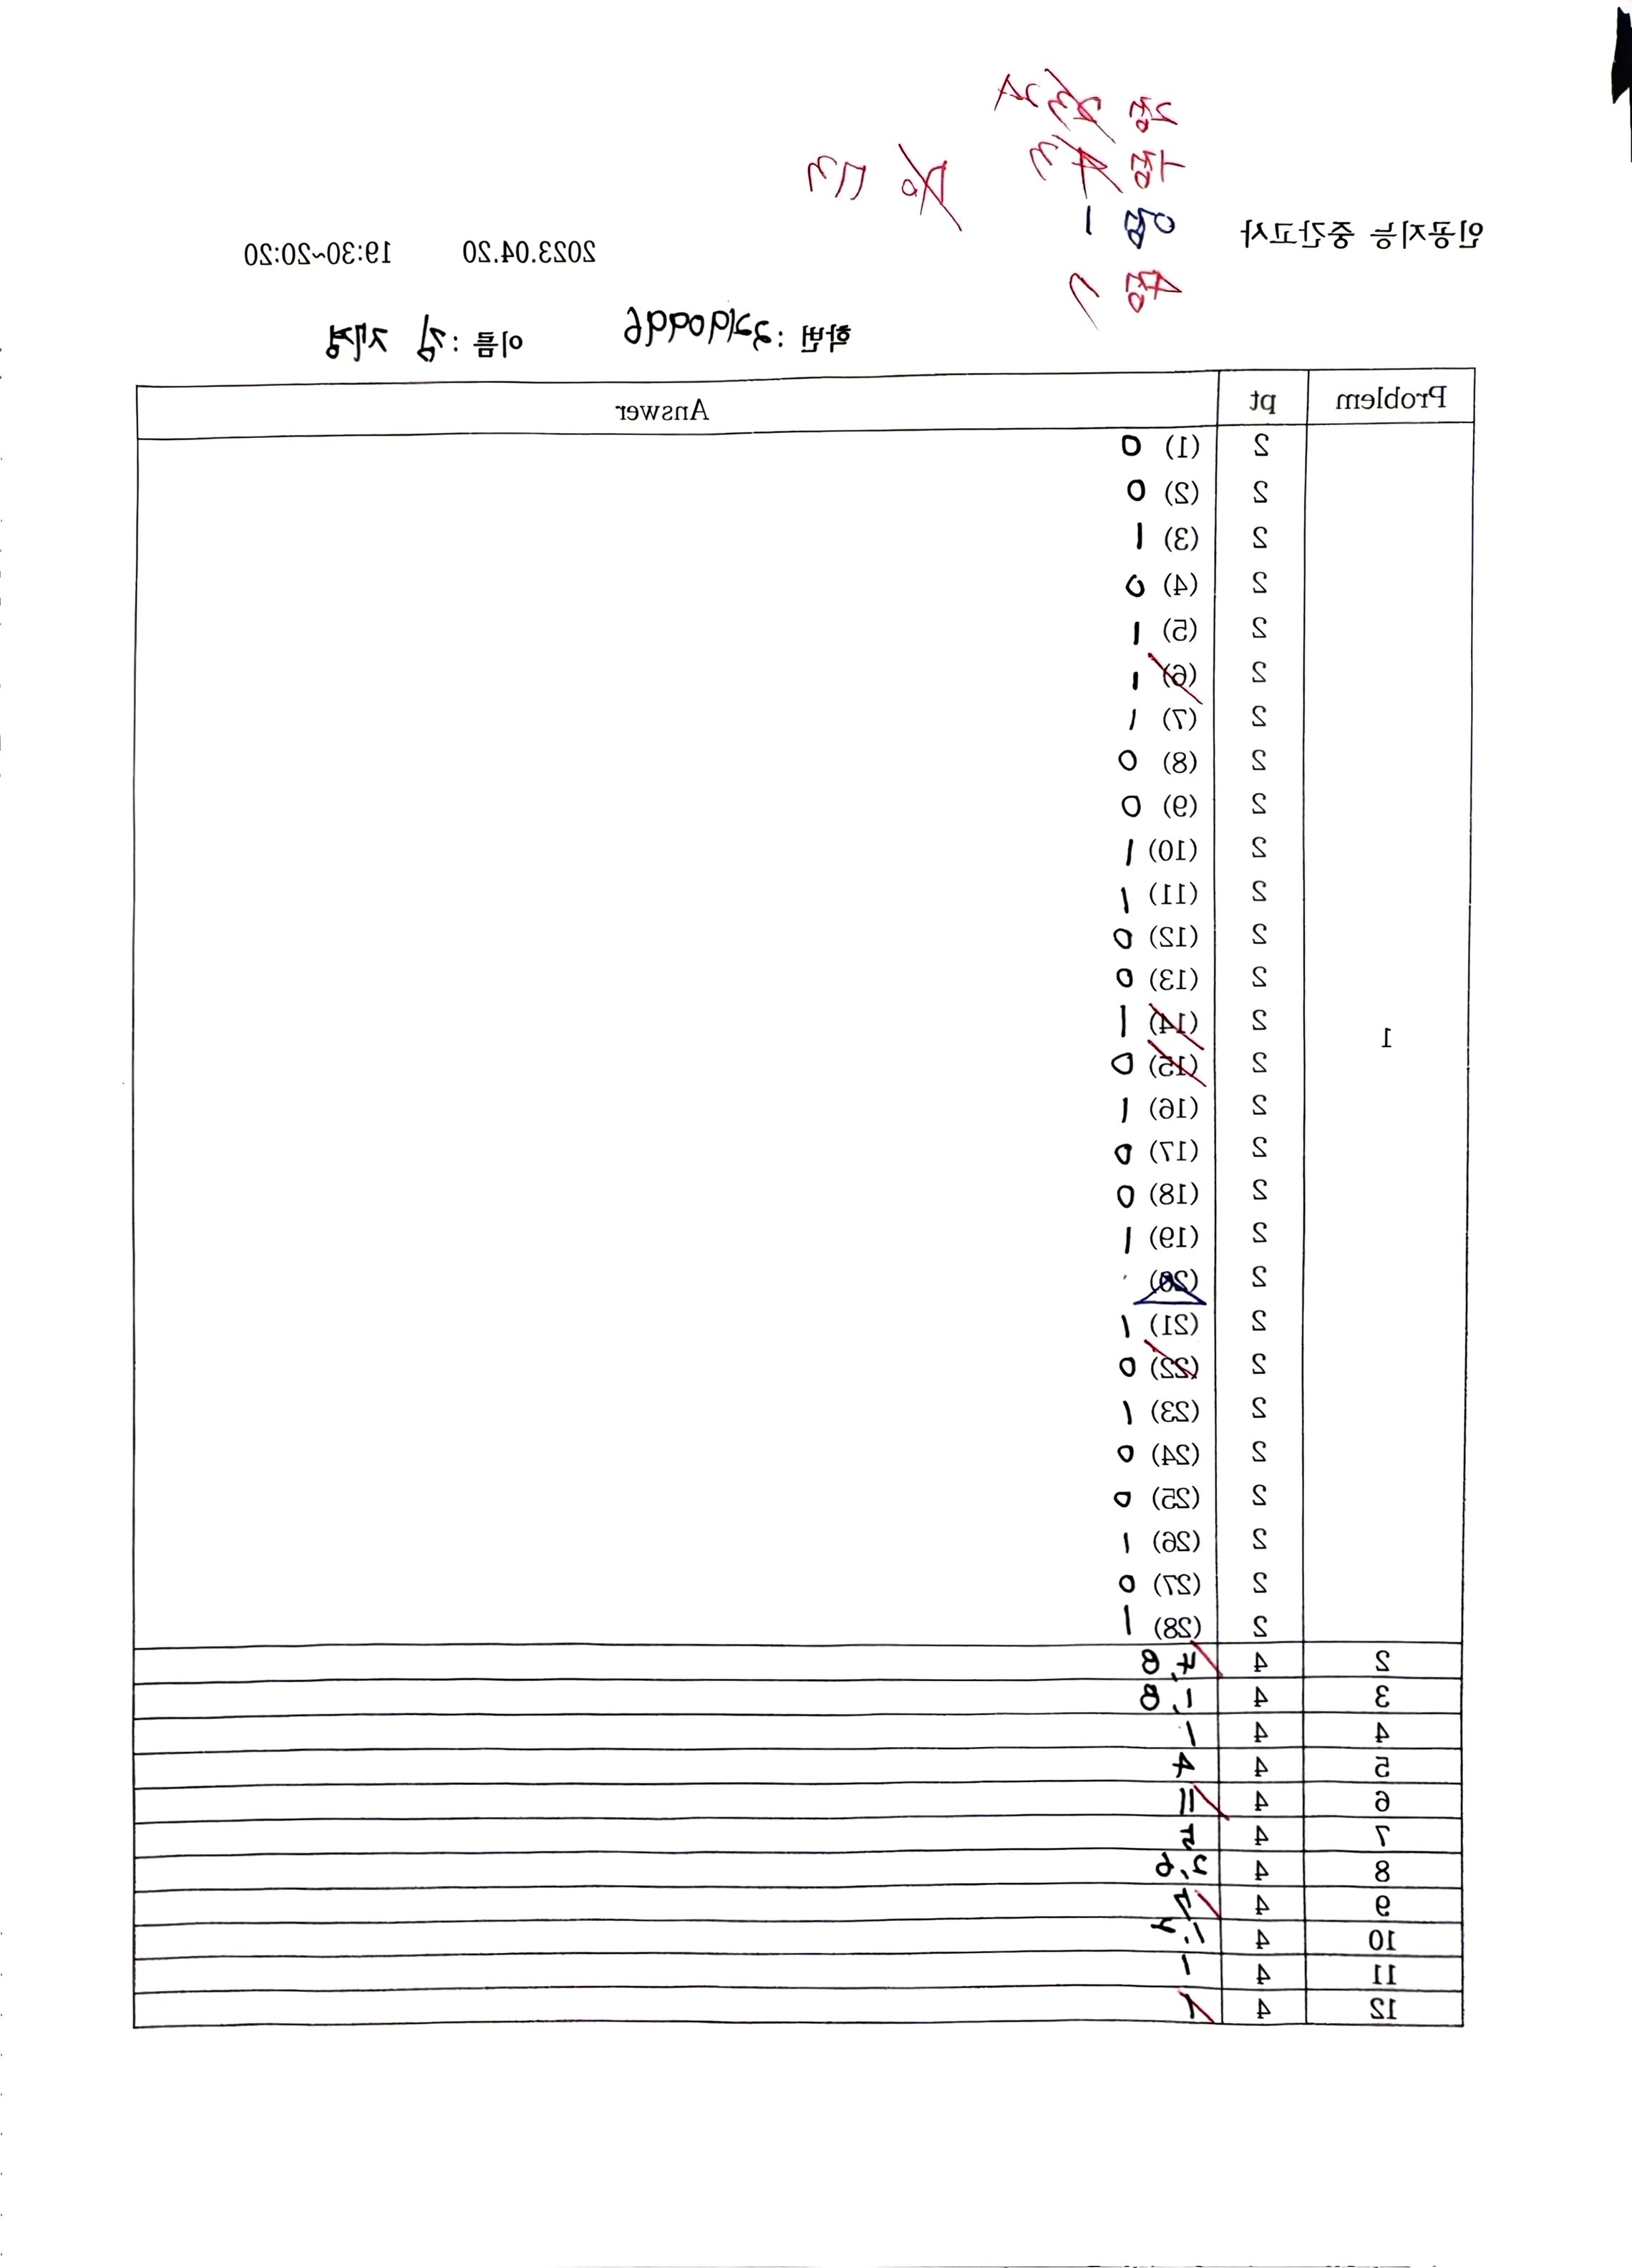 2점 23 24
1점 4 3
0점 1
4점 7
70 73
인공지능 중간고사 2023.04.20 19:30~20:20
학번 : 이름 : 김
Problem pt Answer
1
2 (1) 0
2 (2) 0
2 (3) 1
2 (4) 0
2 (5) 1
2 (6) 1
2 (7) 1
2 (8) 0
2 (9) 0
2 (10) 1
2 (11) 1
2 (12) 0
2 (13) 0
2 (14) 1
2 (15) 0
2 (16) 1
2 (17) 0
2 (18) 0
2 (19) 1
2 (20)
2 (21) 1
2 (22) 0
2 (23) 1
2 (24) 0
2 (25) 0
2 (26) 1
2 (27) 0
2 (28) 1
2 4 7, 8
3 4 1, 8
4 4 1
5 4 4
6 4 11
7 4 5
8 4 2, 6
9 4
10 4 1, 4
11 4 1
12 4 1